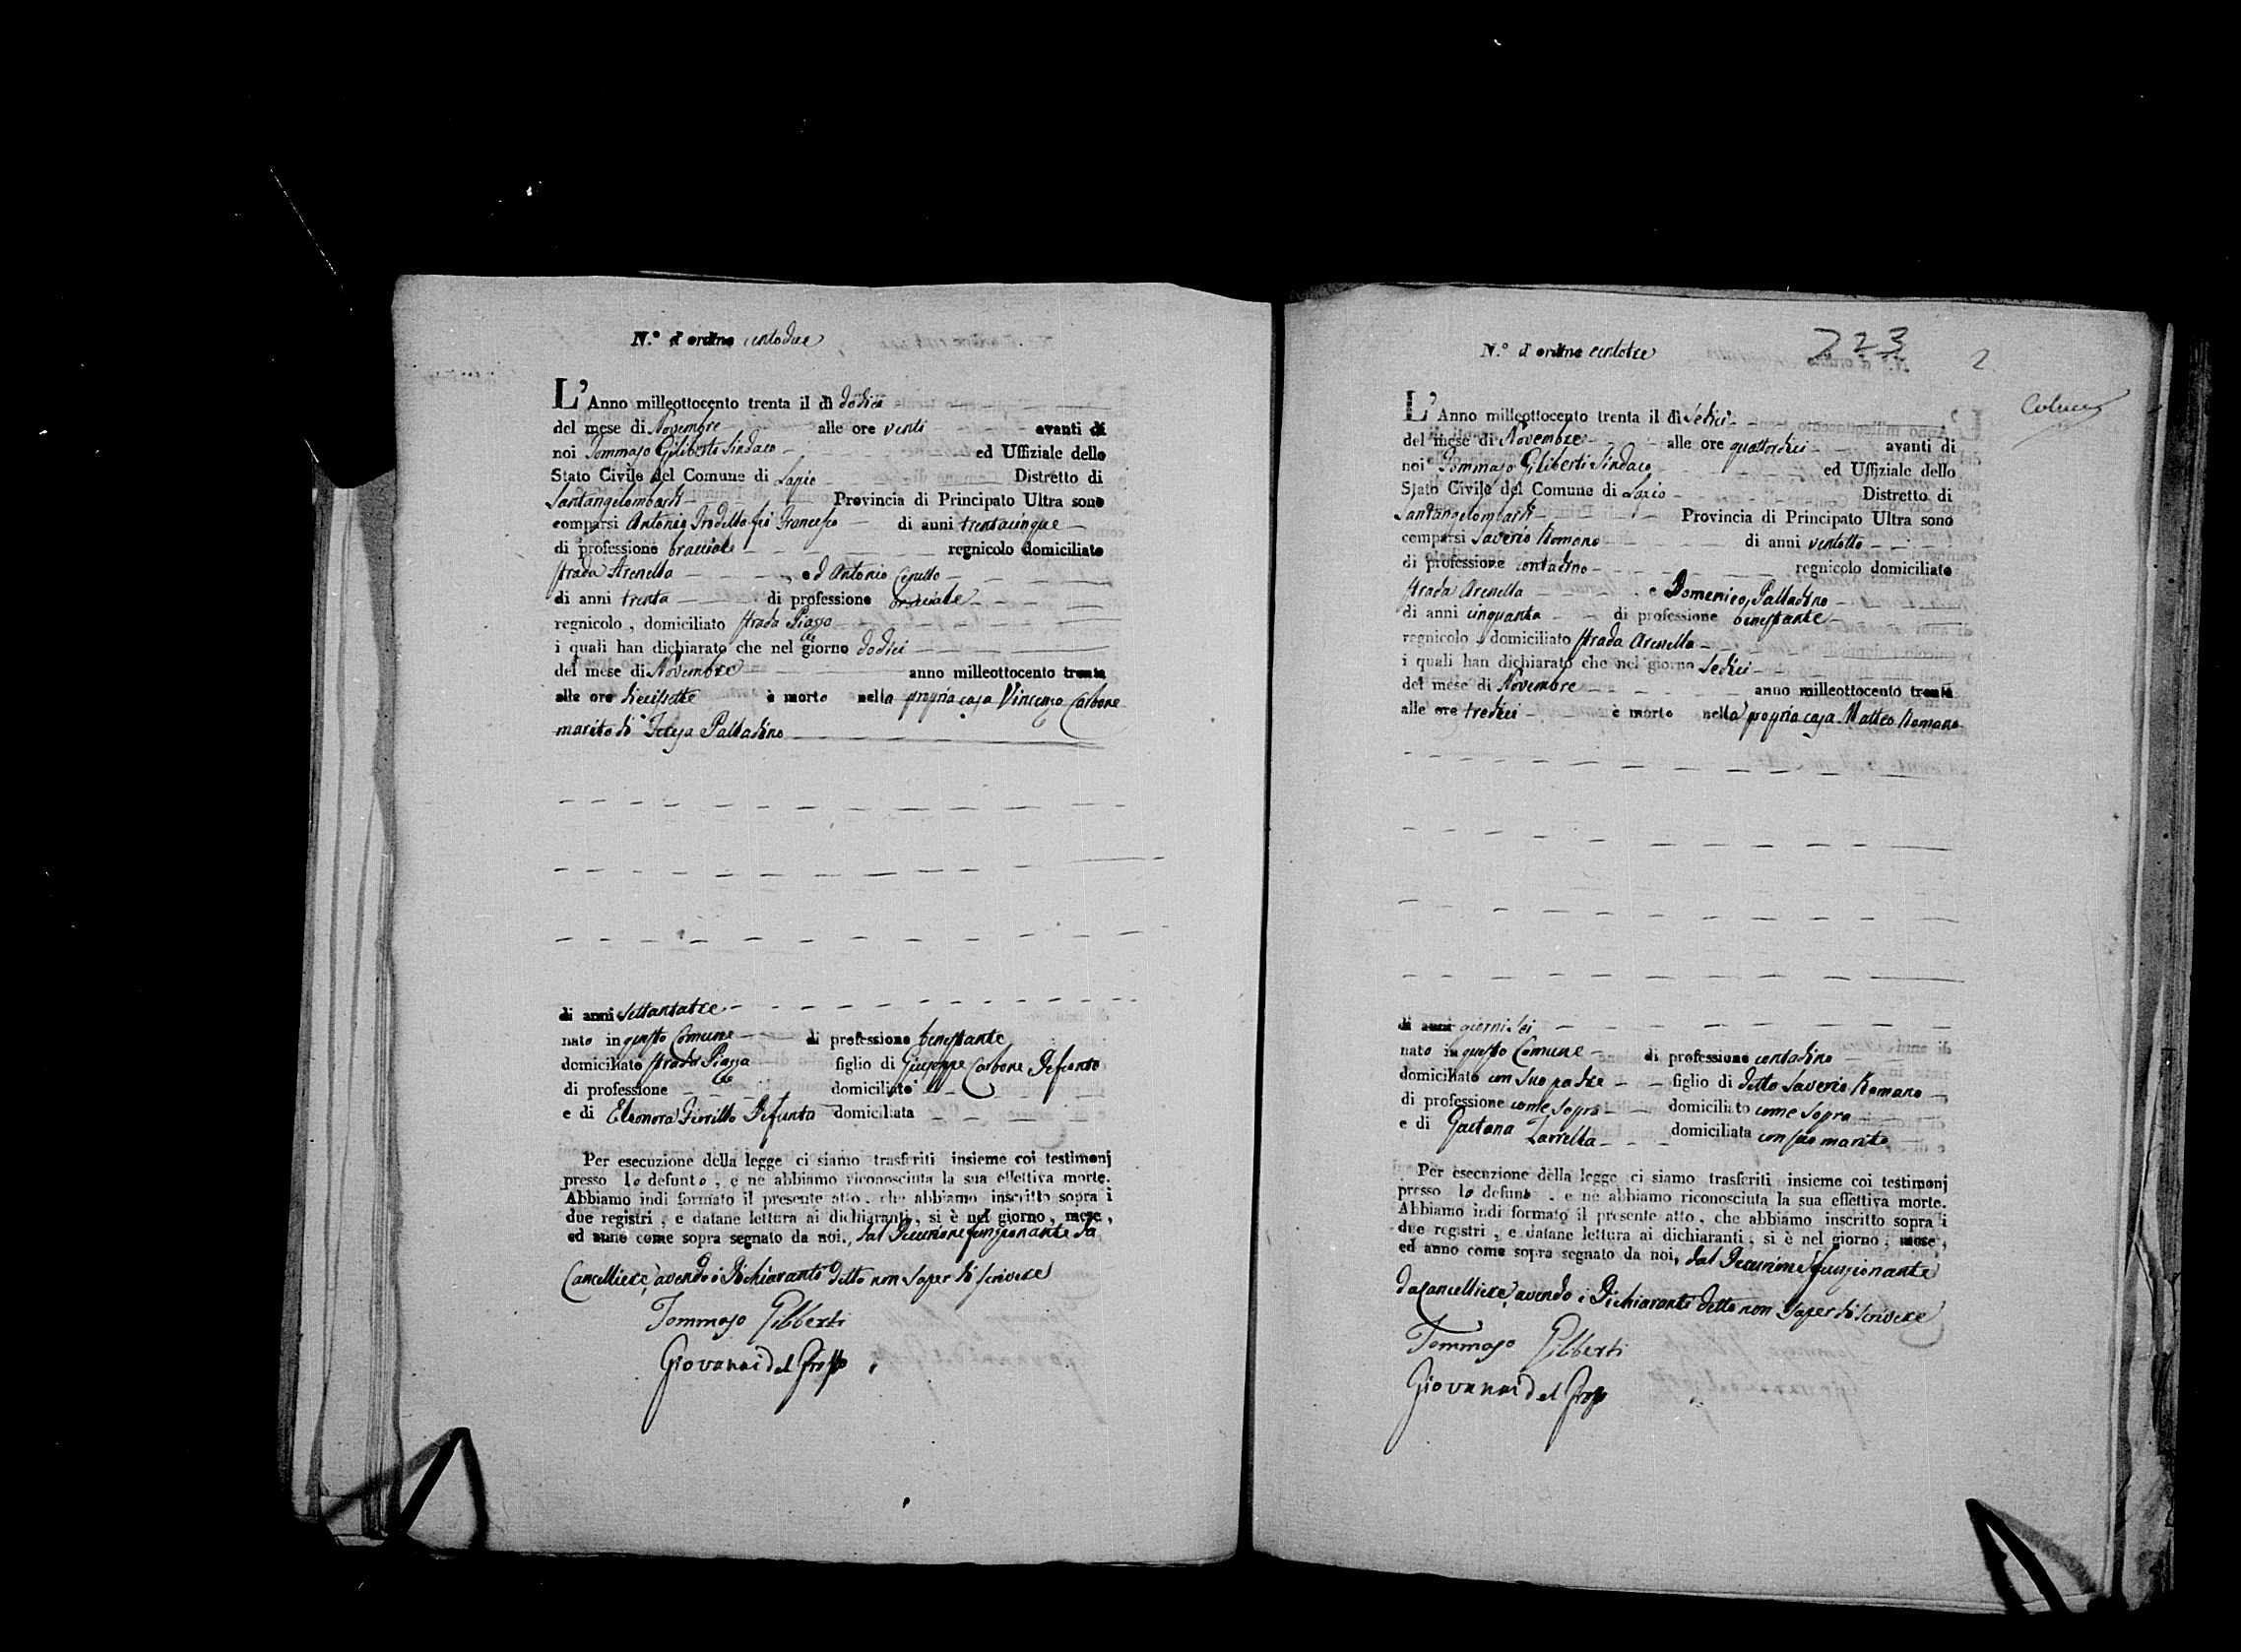 N.° d'ordine centodue
L'Anno milleottocento trenta il dì dodici
del mese di Novembre alle ore venti avanti di
noi Tommaso Giliberti Sindaco ed Uffiziale dello
Stato Civile del Comune di Lapio Distretto di
Santangelombardi Provincia di Principato Ultra sono
comparsi Antonio Trodella fu Francesco di anni trentacinque
di professione bracciale regnicolo domiciliato
strada Arenella , ed Antonio
di anni trenta di professione bracciale
regnicolo , domiciliato strada Piazza
i quali han dichiarato che nel giorno dodici
del mese di Novembre anno milleottocento trenta
alle ore diecisette è morto nella propria casa Vincenzo Carbone
marito di Teresa Palladino
di anni settantatre
nato in questo Comune di professione benestante
domiciliato strada Piazza figlio di Giuseppe Carbone Defunto
di professione domiciliato
e di Eleonora Defunta domiciliata
Per esecuzione della legge ci siamo trasferiti insieme coi testimonj
presso lo defunto , e ne abbiamo riconosciuta la sua effettiva morte.
Abbiamo indi formato il presente atto , che abbiamo inscritto sopra i
due registri , e datane lettura ai dichiaranti , si è nel giorno , mese ,
ed anno come sopra segnato da noi, dal Decurione funzionante da
Cancelliere, avendo i Dichiaranti detto non saper di scrivere
Tommaso Giliberti
Giovanni del Grosso
N.° d'ordine centotre
223
2
L'Anno milleottocento trenta il dì sedici
del mese di Novembre alle ore quattordici avanti di
noi Tommaso Giliberti Sindaco ed Uffiziale dello
Stato Civile del Comune di Lapio Distretto di
Santangelombardi Provincia di Principato Ultra sono
comparsi Saverio Romano di anni ventotto
di professione contadino regnicolo domiciliato
strada Arenella e Domenico Palladino
di anni cinquanta di professione benestante
regnicolo , domiciliato strada Arenella
i quali han dichiarato che nel giorno sedici
del mese di Novembre anno milleottocento trenta
alle ore tredici è morto nella propria casa Matteo Romano
di anni giorni sei
nato in questo Comune di professione contadino
domiciliato con suo padre figlio di detto Saverio Romano
di professione come sopra domiciliato come sopra
e di Gaetana Zarrella domiciliata con suo marito
Per esecuzione della legge ci siamo trasferiti insieme coi testimonj
presso lo defunto , e ne abbiamo riconosciuta la sua effettiva morte.
Abbiamo indi formato il presente atto , che abbiamo inscritto sopra i
due registri , e datane lettura ai dichiaranti , si è nel giorno , mese ,
ed anno come sopra segnato da noi, dal Decurione funzionante
da Cancelliere, avendo i Dichiaranti detto non saper di scrivere
Tommaso Giliberti
Giovanni del Grosso